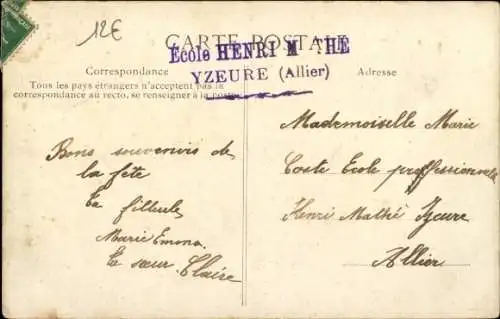 12E
CARTE POSTALE
École HENRI M THÉ
YZEURE (Allier)
Correspondance
Tous les pays étrangers n'acceptent pas la
correspondance au recto, se renseigner à la poste
Adresse
Bons souvenirs de
la fête
Ta filleule
Marie Emma
Ta sœur Claire
Mademoiselle Marie
Coste Ecole proffessionnelle
Henri Mathé Yzeure
Allier